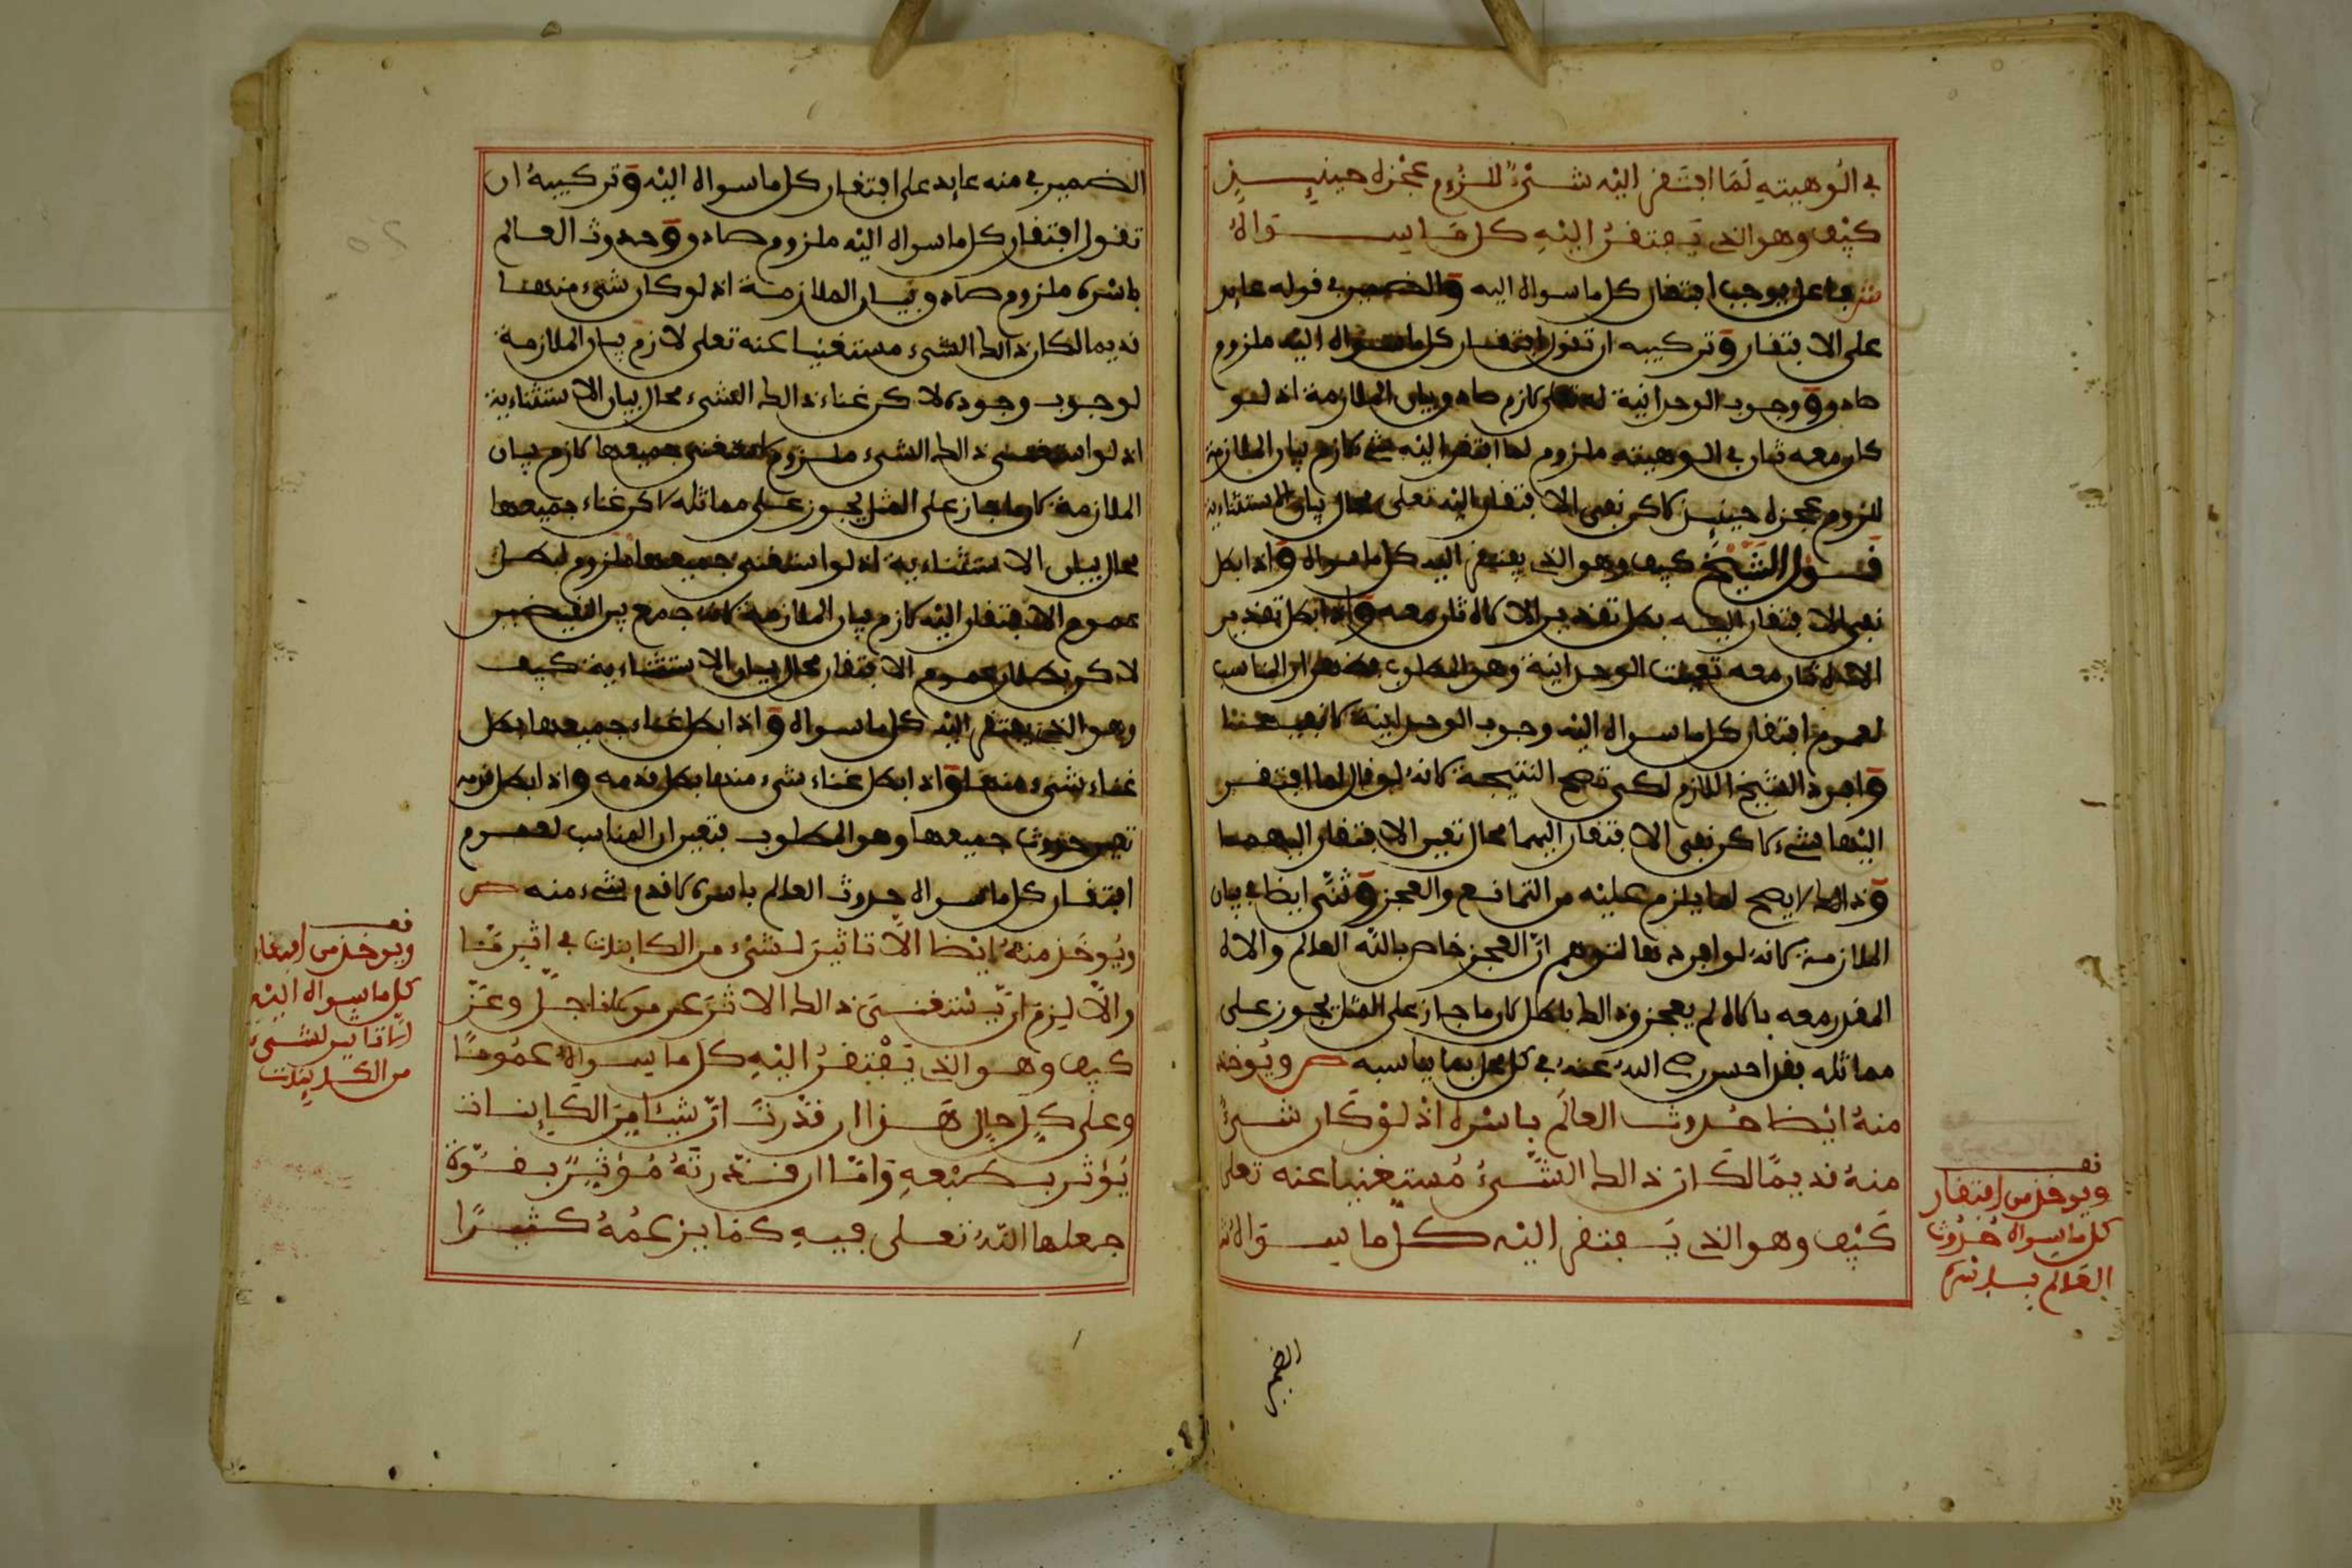 في ألوهيته لما افتقر إليه شيء للزوم عجزه حينيذ
كيف وهو الذي يفتقر إليه كل ما سواه
ش فاعل يوجب افتقار كل ما سواه اليه والضمير في قوله عايد
على الافتقار وتركيبه ان تقول افتقار كل ما سواه اليه ملزوم
صادق ووجوب الوحدانية له تعلى لازم صادق وبيان الملازمة اذ لو
كان معه ثان في الوهيته ملزوم لما افتقر اليه شيء لازم بيان الملازمة
للزوم عجزه حينيذ لاكن نفي الافتقار اليه تعلى محال بيان الاستثناءية
قول الشيخ كيف وهو الذي يفتقر اليه كل ما سواه واذا بطل
نفي الافتقار اليه بطل تقدير الاه ثان معه واذا بطل تقدير
الاه ثان معه تعينت الوحدانية وهو المطلوب ان المناسب
لعموم افتقار كل ما سواه اليه وجوب الوحدانية
وافرد الشيخ اللازم لكي تصح النتيجة لانه لو قال لما افتقر
اليهما شيء لاكن نفي الافتقار اليهما محال تعين الافتقار اليهما
وذالك لا يصح لما يلزم عليه من التمانع والعجز وثنى ايضا في بيان
الملازمة لانه لو افرد بها لتوهم ان العجز خاص بالله العالم والاله
المقدر معه بالاه لم يعجز وذالك باطل لان ما جاز على المثل يجوز على
مماثله فقد احسن رضي الله عنه في كل محل بما يناسبه ص ويوخذ
منه أيضا حدوث العالم بأسره اذ لو كان شيء
منه قديما لكان ذالك الشيء مستغنيا عنه تعلى
كيف وهو الذي يفتقر اليه كل ما سواه ش
نص
ويوخذ من افتقار
كل ما سواه حدوث
العالم بأسره
الضمير
الضمير في منه عايد على افتقار كل ما سواه اليه وتركيبه ان
تقول افتقار كل ما سواه اليه ملزوم صادق وحدوث العالم
بأسره ملزوم صادق وبيان الملازمة اذ لو كان شيء منهما
قديما لكان ذالك الشيء مستغنيا عنه تعلى لازم بيان الملازمة
لوجوب وجوده لاكن غناء ذالك الشيء محال بيان الاستثناءية
اذ لو استغنى ذالك الشيء ملزوم لاستغنى جميعها لازم بيان
الملازمة لان ما جاز على المثل يجوز على مماثله لاكن غناء جميعها
محال بيان الاستثناءية اذ لو استغنى جميعها ملزوم لبطل
عموم الافتقار اليه لازم بيان الملازمة لانه جمع بين النقيضين
لاكن بطلان عموم الافتقار محال بيان الاستثناءية كيف
وهو الذي يفتقر اليه كل ما سواه واذا بطل غناء جميعها بطل
غناء شيء منها واذا بطل غناء شيء منها بطل قدمه واذا بطل قدمه
تعين حدوث جميعها وهو المطلوب فتعين ان المناسب لعموم
افتقار كل ما سواه حدوث العالم بأسره لا قدم شيء منه ص
ويوخذ منه أيضا ألا تاثير لشيء من الكاينات في أثر ما
وإلا لزم أن يستغني ذالك الاثر عن مولانا جل وعز
كيف وهو الذي يفتقر إليه كل ما سواه عموما
وعلى كل حال هذا إن قدرت أن شيئا من الكاينات
يؤثر بطبعه وأما إن قدرته مؤثرا بقوة
جعلها الله تعلى فيه كما يزعمه كثيرا
نص
ويوخذ من افتقار
كل ما سواه اليه
ألا تاثير لشيء
من الكاينات